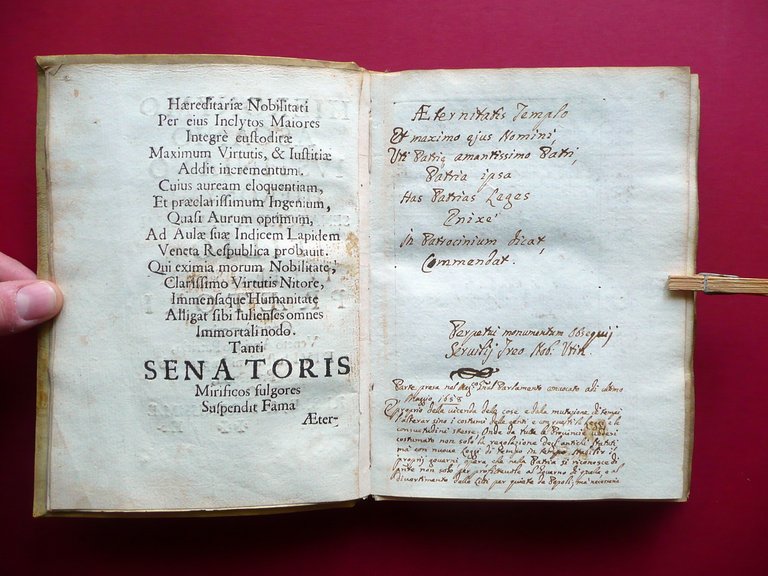 Hæreditariæ Nobilitati
Per eius Inclytos Maiores
Integrè custoditæ
Maximum Virtutis, & Iustitiæ
Addit incrementum.
Cuius auream eloquentiam,
Et præclarissimum Ingenium,
Quasi Aurum optimum,
Ad Aulæ suæ Indicem Lapidem
Veneta Respublica probauit.
Qui eximia morum Nobilitate,
Clarissimo Virtutis Nitore,
Immensaque Humanitate
Alligat sibi Iulienses omnes
Immortali nodo.
Tanti
SENATORIS
Mirificos fulgores
Suspendit Fama
Æter-
Æternitatis Templo
Et maximo ejus Nomini,
Uti Patrię amantissimo Patri,
Patria ipsa
Has Patrias Leges
Enixè
in Patrocinium dicat,
Commendat.
Perpetui monumentum Obsequij
Seruilij Treo Nob. Utin.
Parte presa nel Parlamento conuocato adi ultimo
Maggio 1658
È proprio della vicenda delle cose e dalla mutatione di tempi
l'alterarsino i costumi delle genti e con questi le Leggi e le
consuetudini stesse. Onde da tutte le Prouincie
costumato non solo la regolatione degl'antichi Statuti
mà con nuoue Leggi di tempo in tempo
proprij gouerni che nella Patria si riconosce di
non solo per al Gouerno di quella e al
diuertimento delle Liti per quiete de Popoli, mà necessaria